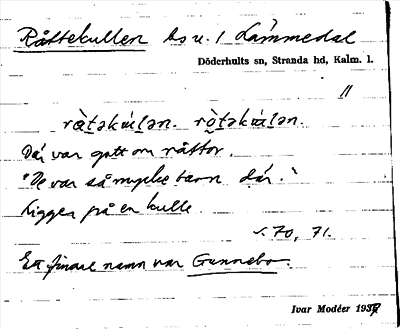 Råttekullen bs u. 1 Lämmedal
Döderhults sn, Stranda hd, Kalm. l.
11
rœ̀t̯əkúlən. rò̯t̯əkúlən.
Där var gott om råttor.
"De var så mycke barn där."
Ligger på en kulle.
s. 70, 71.
Ett finare namn var Gunnebo.
Ivar Modéer 1937